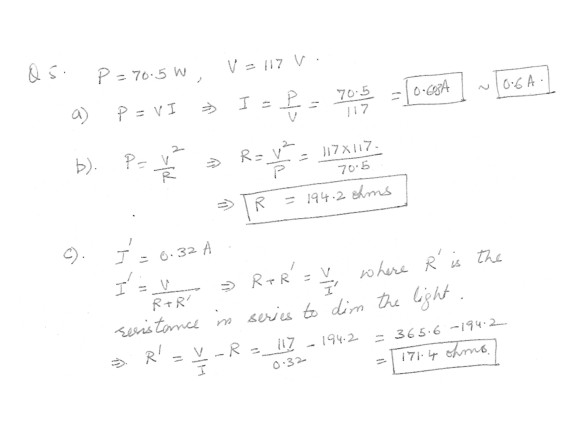 Q5. P = 70.5 W, V = 117 V.
a) P = VI ⇒ I = P/V = 70.5/117 = 0.603A ~ 0.6 A.
b). P = V²/R ⇒ R = V²/P = 117×117./70.5
⇒ R = 194.2 ohms
c). I' = 0.32 A
I' = V/R+R' ⇒ R+R' = V/I', where R' is the
resistance in series to dim the light.
⇒ R' = V/I - R = 117/0.32 - 194.2 = 365.6 - 194.2
= 171.4 ohms.